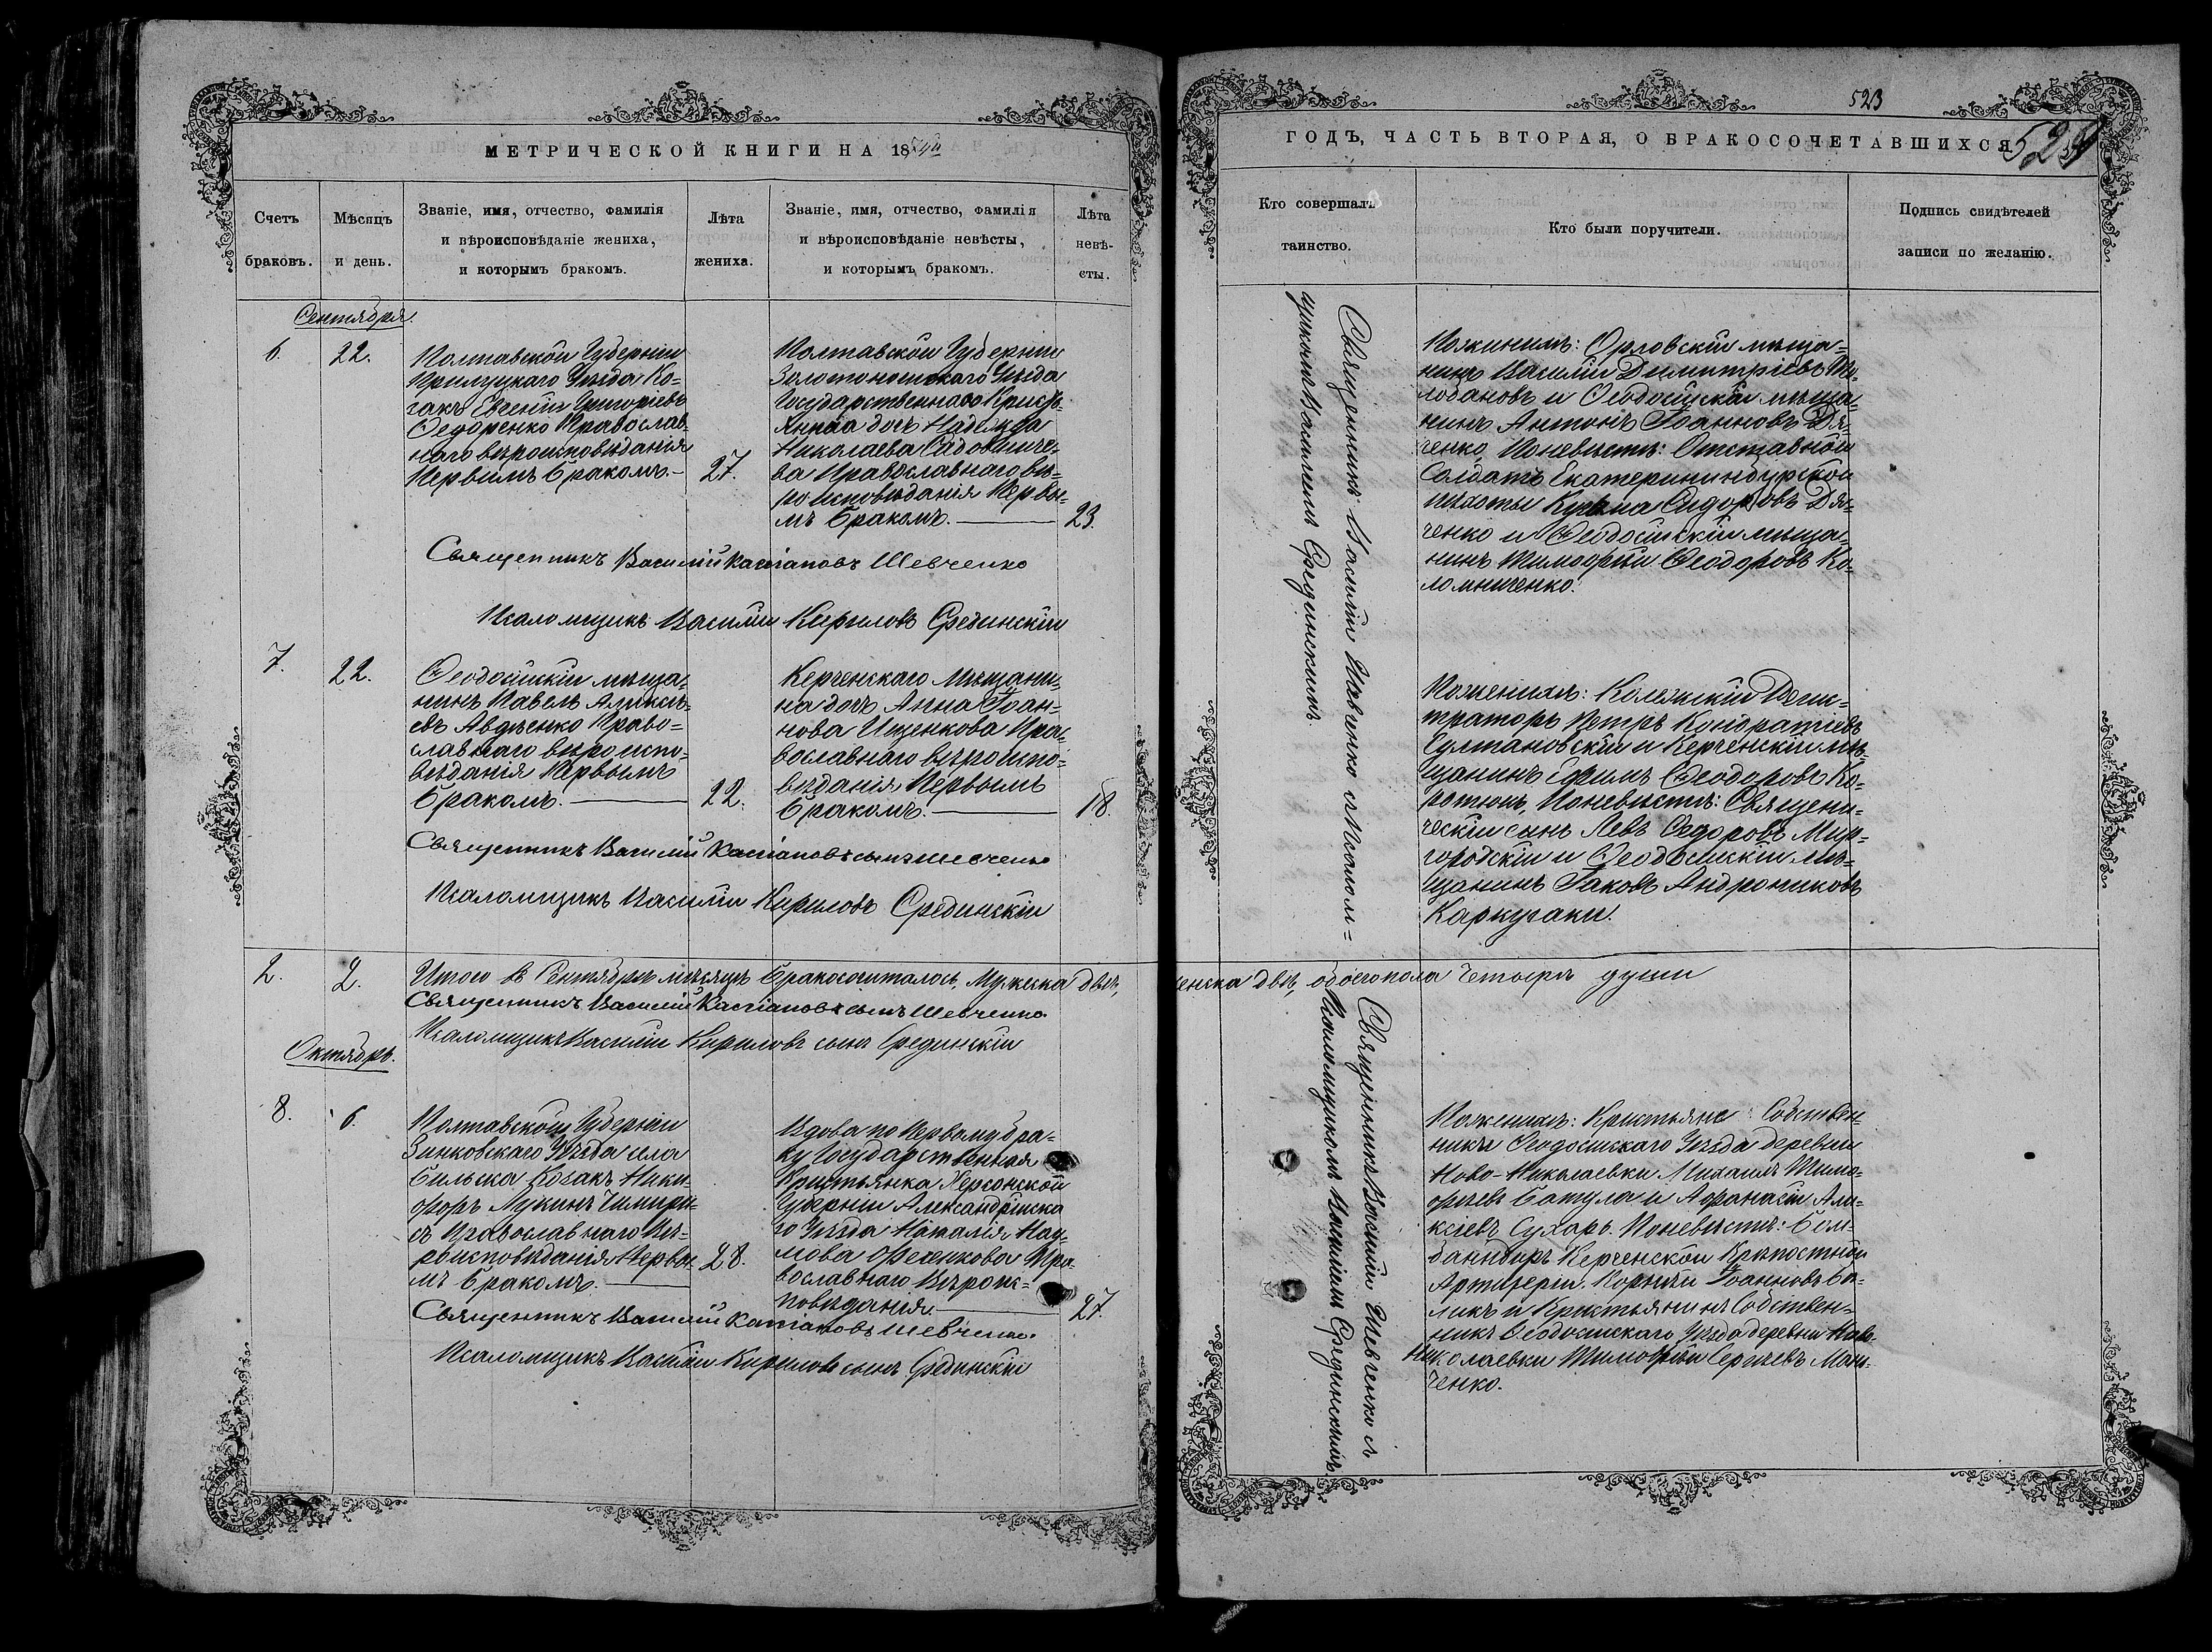 МЕТРИЧЕСКОЙ КНИГИ НА 18
Счетъ браковъ.
Мѣсяцъ и день.
Званіе, имя, отчество, фамилія
и вѣроисповѣданіе жениха,
и которымъ бракомъ.
Лѣта жениха.
Званіе, имя, отчество, фамилія
и вѣроисповѣданіе невѣсты,
и которымъ бракомъ.
Лѣта
невѣ-
сты.
Сентября.
6.
22.
Полтавской Губерніи
Прилуцкаго Уѣзда Ко=
закъ Евгеній Григоріевъ
Федоренко Православ=
наго вѣроисповѣданія
Первымъ бракомъ.
27.
Полтавской Губерніи
Золотоношскаго Уѣзда
Государственнаго Кресть=
янина дочь Надежда
Николаева
ва Православнаго вѣ=
роисповѣданія Первы=
мъ бракомъ.
23.
Священникъ Василій Кассіановъ Шевченко
Псаломщикъ Василій Кириловъ Срединскій
7.
22.
Ѳеодосійскій мѣща=
нинъ Павелъ Алексѣ=
евъ Авдѣенко Право=
славнаго вѣроиспо=
вѣданія Первымъ
бракомъ.
22.
Керченскаго Мѣщани=
на дочь Анна Іоан=
нова Ищенкова Пра=
вославнаго вѣроиспо=
вѣданія Первымъ
бракомъ.
18.
Священникъ Василій Кассіановъ сынъ Шевченко
Псаломщикъ Василій Кириловъ Срединскій
2.
2.
Итого въ Сентябрѣ мѣсяцѣ бракосочиталось, Мужеска двѣ,
Священникъ Василій Кассіановъ сынъ Шевченко
Псаломщикъ Василій Кириловъ сынъ Срединскій
Октябрь.
8.
6.
Полтавской Губерніи
Зинковскаго Уѣзда села
Бильска Козакъ Ники=
форъ Лукинъ
Православнаго Вѣ=
роисповѣданія Первы=
мъ бракомъ.
28.
Вдова по Первому бра=
ку Государственная
Крестьянка Херсонской
Губерніи Александрійска
го Уѣзда Наталія Нау=
мова Фесенкова Пра=
вославнаго Вѣроис=
повѣданія
27.
Священникъ Василій Кассіановъ Шевченко.
Псаломщикъ Василій Кириловъ сынъ Срединскій
523
ГОДЪ, ЧАСТЬ ВТОРАЯ, О БРАКОСОЧЕТАВШИХСЯ
Кто совершалъ
таинство.
Кто были поручители.
Подпись свидѣтелей
записи по желанію.
Священникъ Василій Шевченко съ Псалом=
щикомъ Василіемъ Срединскимъ
Пожениху: Орловскій мѣща=
нинъ Василій Димитріевъ
и Ѳеодосійскій мѣща=
нинъ Антонъ Іоанновъ Дя=
ченко, Поневѣстѣ: Отставной
Солдатъ Екатеринибурской
пѣхоты Кузьма Сидоровъ Дя=
ченко и Ѳеодосійскій мѣща=
нинъ Тимофѣй Ѳеодоровъ Ко=
ломиченко.
Пожениху: Колежскій Регис=
траторъ Петръ Кондратіевъ
Султановскій и Керченскій мѣ=
щанинъ Ефимъ Ѳеодоровъ Ко=
ротюкъ, Поневѣстѣ: Священи=
ческій сынъ Левъ Федоровъ Мир=
городскій и Ѳеодосійскій мѣ=
щанинъ Іаковъ Андрониковъ
Каркузаки.
женска двѣ, обоего пола Четыре души
Священникъ Василій Шевченко съ
Псаломщикомъ Василіемъ Срединскимъ
Пожениху: Крестьяне Собствен=
ники Ѳеодосійскаго Уѣзда деревни
Ново-Николаевки Михаилъ Тимо=
фѣевъ Батула и Афанасій Але=
ксѣевъ Сухарь. Поневѣстѣ: Бом=
бандиръ Керченской Крѣпостной
Артилеріи. Корнѣй Іоанновъ
и Крестьянинъ Собствен=
никъ Ѳеодосійскаго Уѣзда деревни Ново-
Николаевки Тимофѣй Сергѣевъ
ченко.